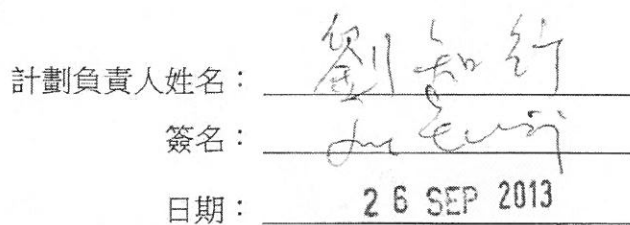 計劃負責人姓名：劉知行
簽名：
日期：26 SEP 2013